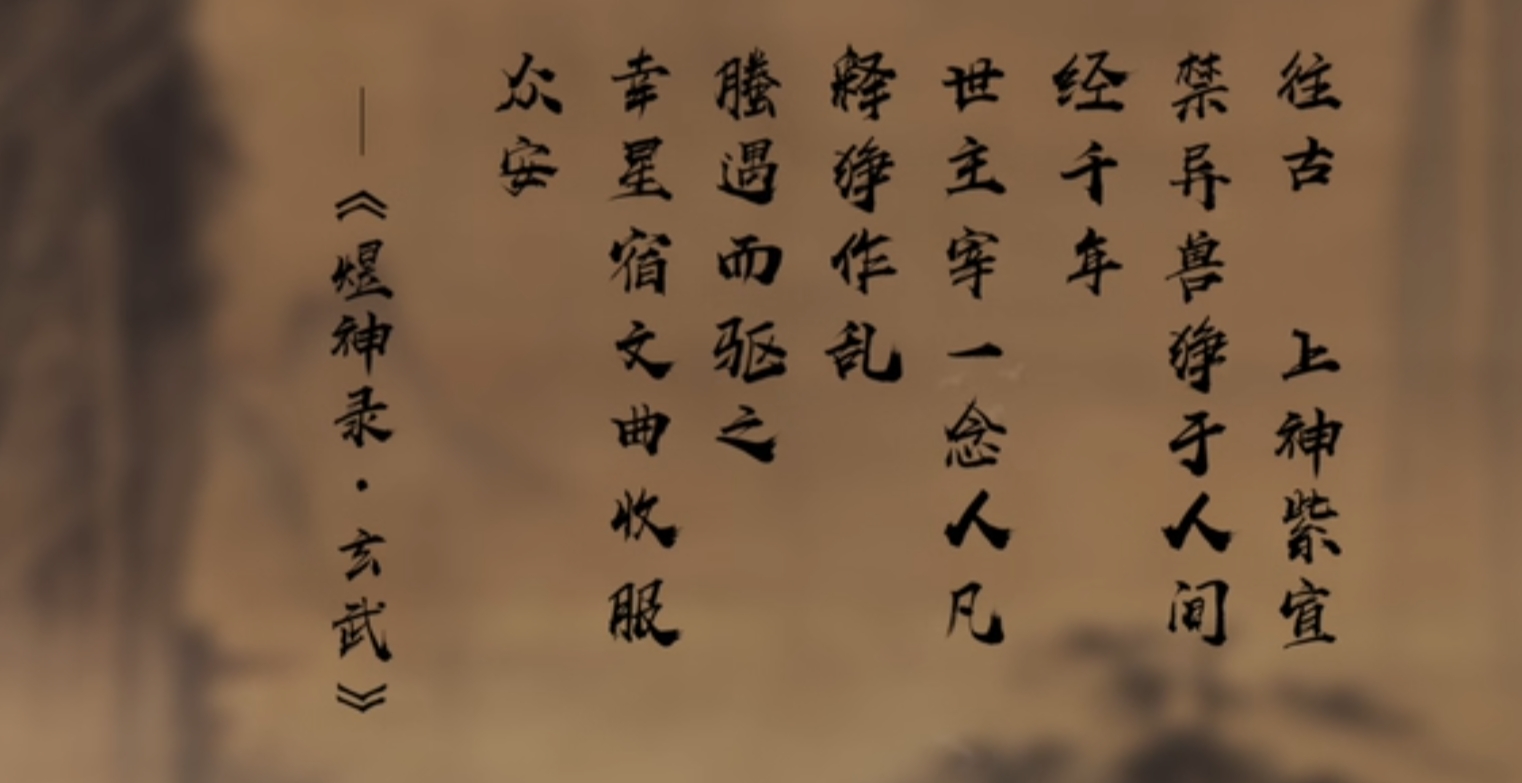 往古 上神紫宣
禁异兽狰于人间
经千年
世主宰一念人凡
释狰作乱
螣遇而驱之
幸星宿文曲收服
众安
—《煜神录·玄武》